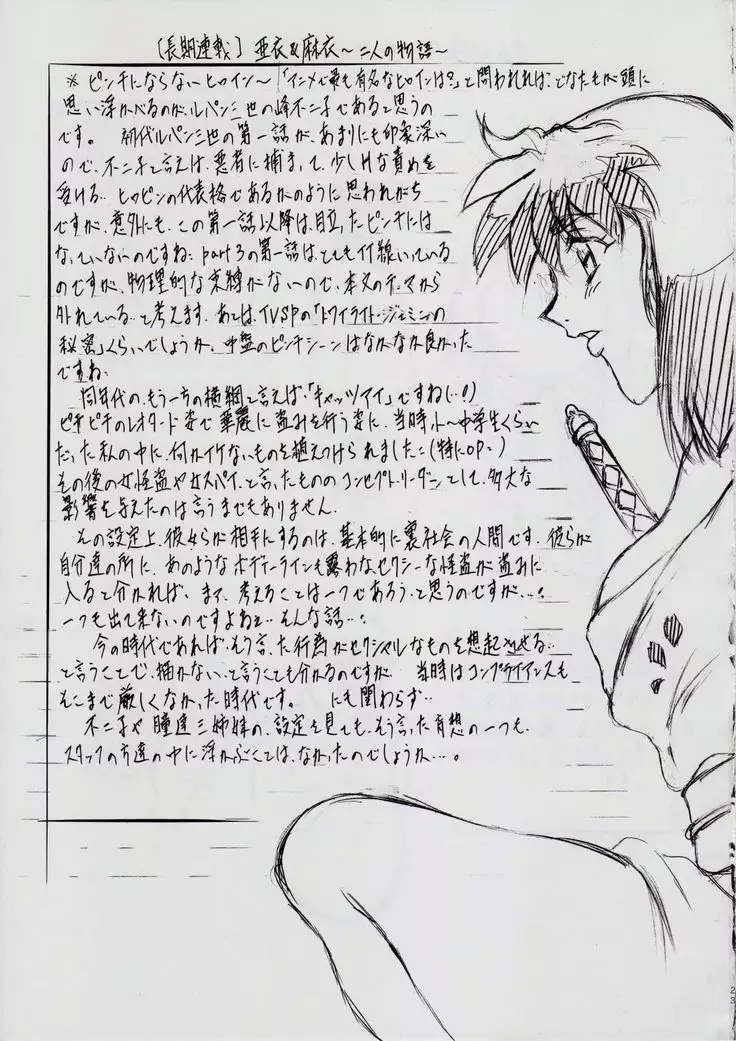 〔長期連載〕 亜衣&麻衣〜二人の物語〜
※ ピンチにならないヒロイン〜 「アニメで最も有名なヒロインは?」と問われれば、どなたもが頭に
思い浮かべるのが、ルパン三世の峰不二子であると思うの
です。 初代ルパン三世の第一話が、あまりにも印象深い
ので、不二子と言えば、悪者に捕まって、少しHな責めを
受ける‥ヒロピンの代表格であるかのように思われがち
ですが、意外にも、この第一話以降は、目立ったピンチには
なっていないのですね‥ part3の第一話は、とてもイイ線いっている
のですが、物理的な束縛がないので、本文のテーマから
外れている‥と考えます。あとは、TVSPの「トワイライト・ジェミニの
秘密」くらいでしょうか。中盤のピンチシーンはなかなか良かった
ですね‥
同年代の、もう一方の横綱と言えば、「キャッツアイ」ですね(‥!)
ピチピチのレオタード姿で華麗に盗みを行う姿に、当時小〜中学生くらい
だった私の中に、何かイケないものを植えつけられました‥(特にOP‥)
その後の女怪盗や女スパイ、と言ったもののコンセプトリーダーとして、多大な
影響を与えたのは言うまでもありません。
その設定上、彼女らが相手にするのは、基本的に裏社会の人間です。彼らが
自分達の所に、あのようなボディーラインも露わな、セクシーな怪盗が盗みに
入ると分かれば、まず、考えることは一つであろう、と思うのですが…。
一つも出て来ないのですよねェ‥そんな話…。
今の時代であれば、そう言った行為がセクシャルなものを想起させる‥
と言うことで、描かない、と言うことも分かるのですが 当時はコンプライアンスも
そこまで厳しくなかった時代です。 にも関わらず‥
不二子や瞳達三姉妹の、設定を見ても、そう言った妄想の一つも、
スタッフの方達の中に浮かぶことは、なかったのでしょうか…。
23